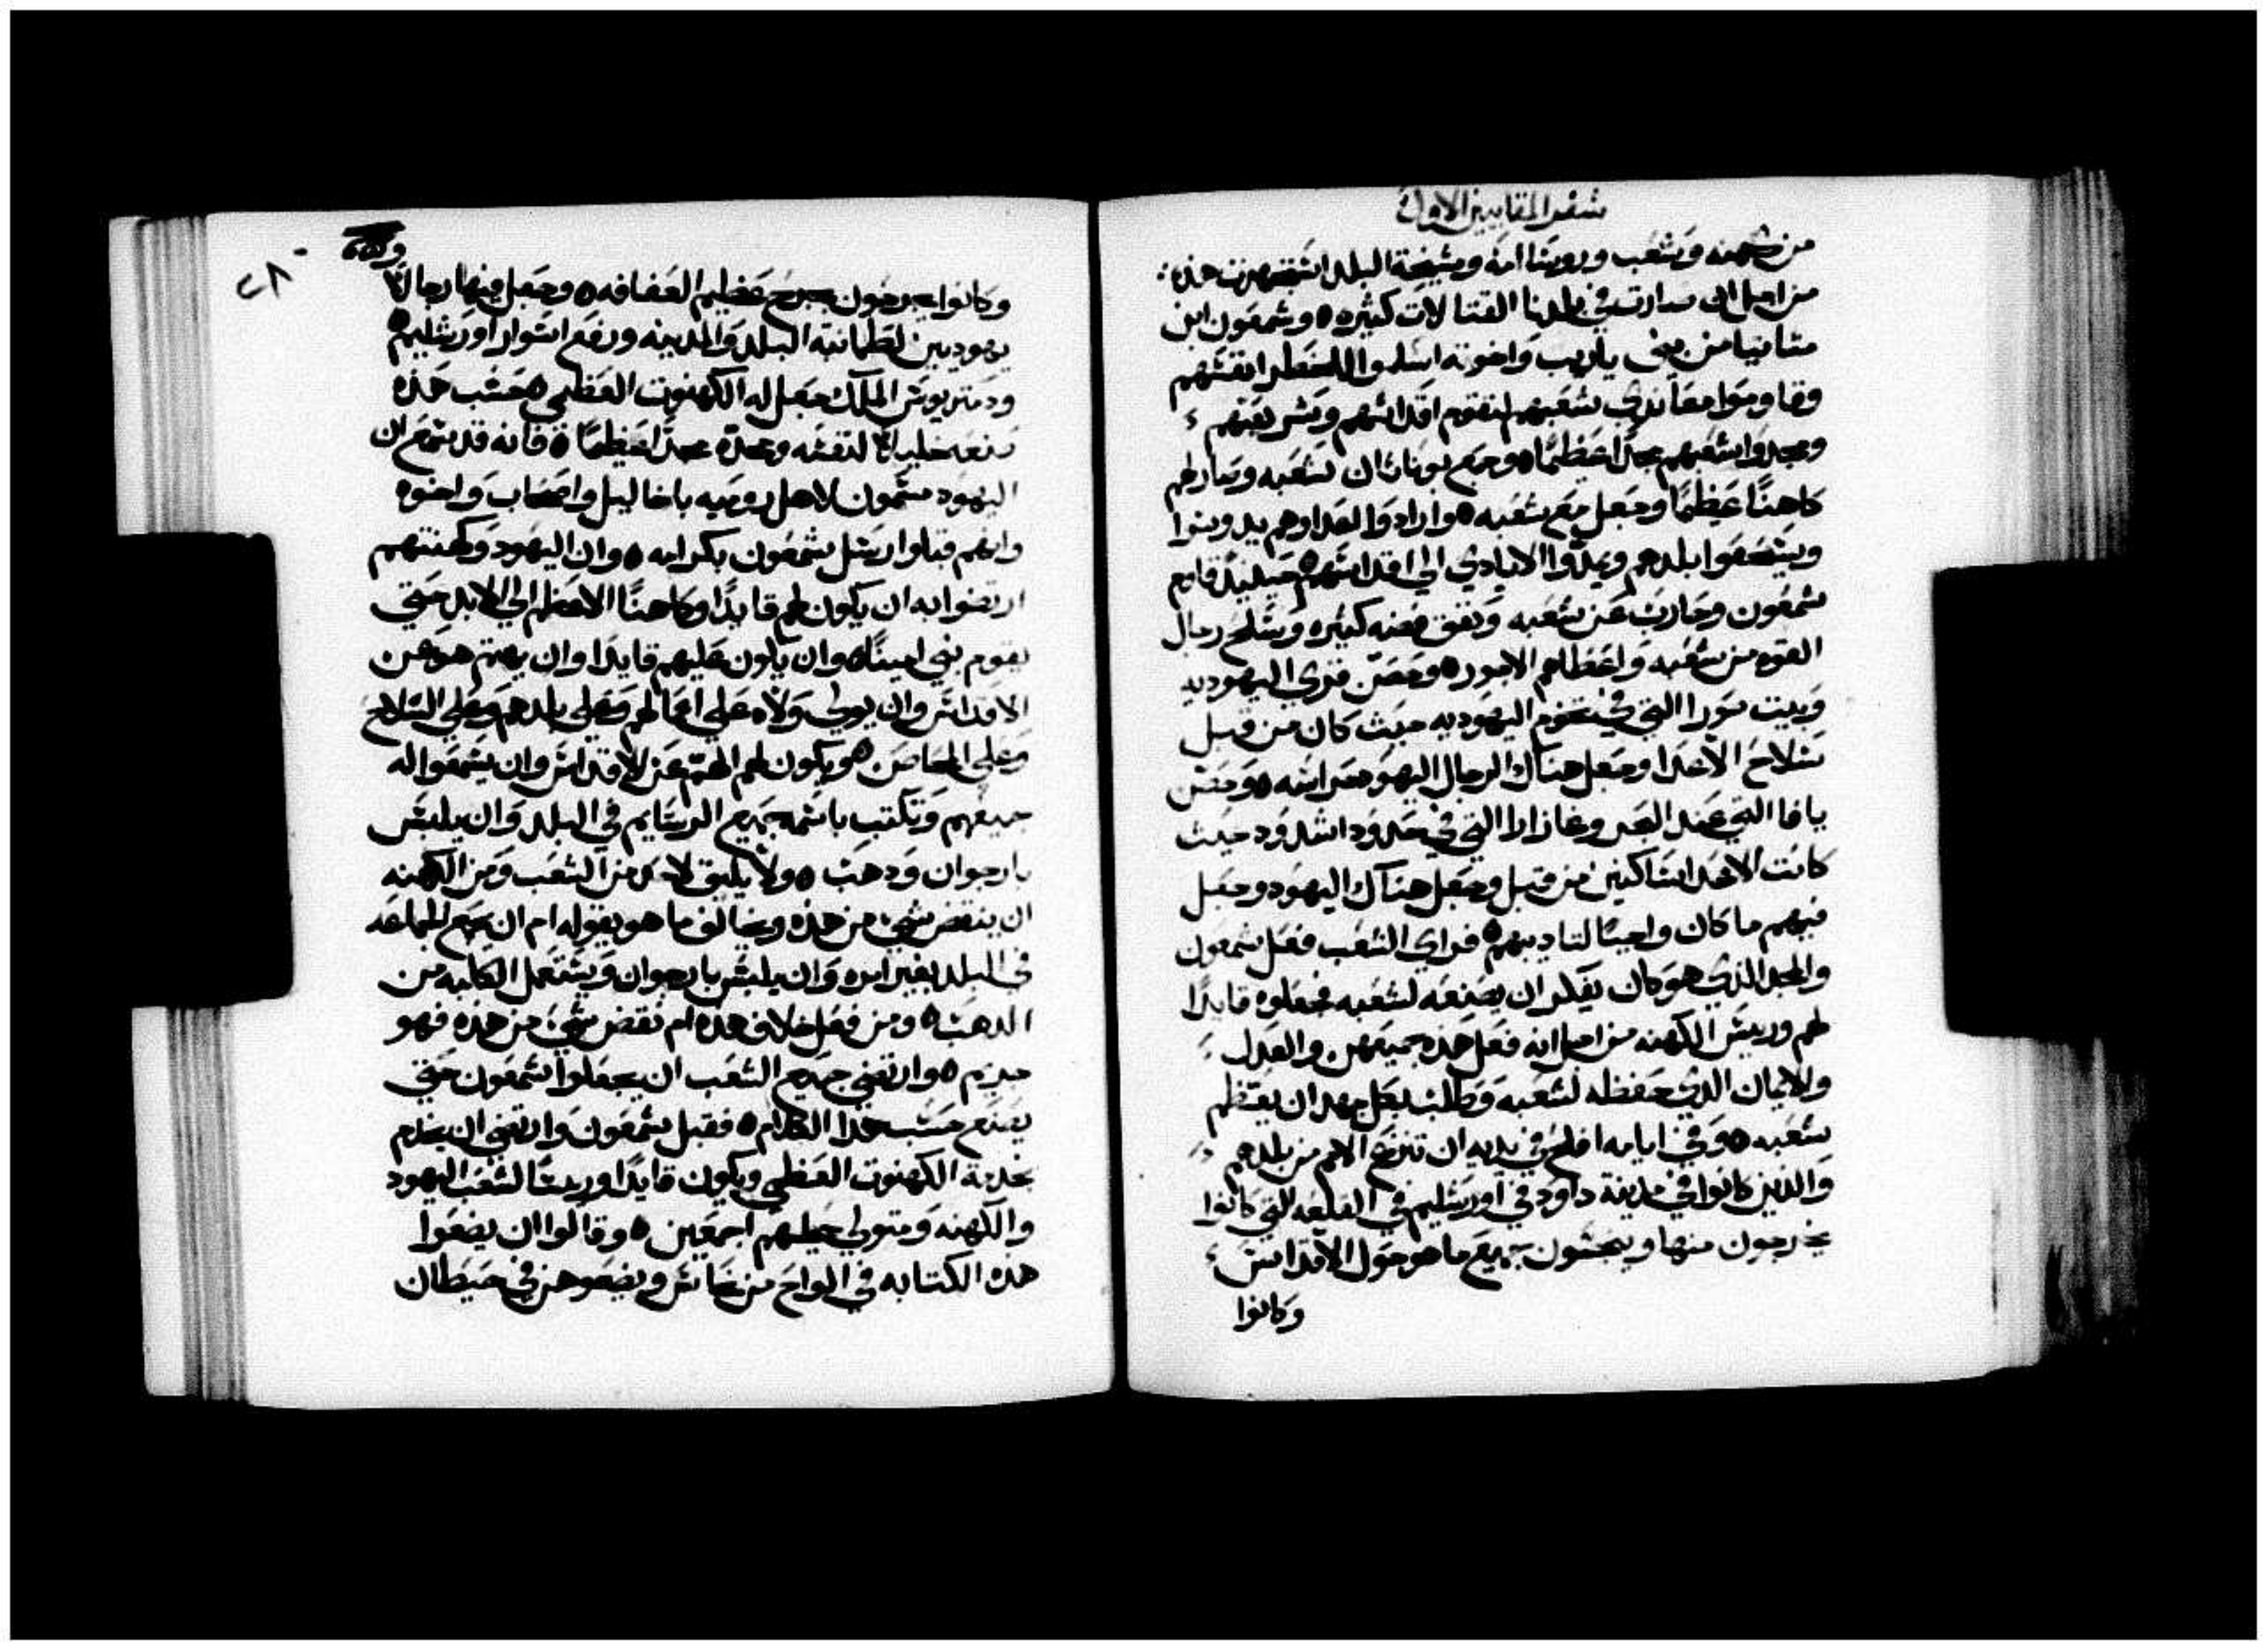 سفر المقابيين الاول
من كهنه وشعب وروسا امه ومشيخة البلد اشتهرت هذه
من اجل ان صارت في بلدنا القتالات كثيره ٥ وشمعون ابن
متاتيا من بني ياريب واخوته اسلموا للخطر انفسهم
وقاوموا معاندي شعبهم لتقوم اقداسهم وشريعتهم
ومجدوا شعبهم مجدًا عظيمًا ٥ وجمع يوناثان شعبه وصار لهم
كاهنًا عظيمًا وجعل مع شعبه ٥ وارادوا العدا وهم يدوسوا
ويسحقوا بلدهم ويمدّوا الايادي الي اقداسهم ٥ حينيذ قاوم
شمعون وحارب عن شعبه ونفق فضه كثيره وسلح رجال
القوه من شعبه واعطاهم الاجور ٥ وحصّن قري اليهوديه
وبيت سورا التي في تخوم اليهوديه حيث كان من قبل
سلاح الاعدا وجعل هناك الرجال اليهود حراسه ٥ وحصّن
يافا التي عند البحر وغازارا التي في حدود اشدود حيث
كانت الاعدا ساكنين من قبل وجعل هناك اليهود وجعل
فيهم ما كان واجبًا لتاديبهم ٥ فراي الشعب فعل شمعون
والمجد الذي هو كان يفكر ان يصنعه لشعبه فجعلوه قايدًا
لهم وريس الكهنه من اجل انه فعل هذه جميعهن والعدل
والايمان الذي حفظه لشعبه وطلب بكل جهد ان يعظم
شعبه ٥ وفي ايامه افلح في يديه ان تنزع الامم من بلدهم
والذين كانوا في مدينة داود في اورشليم في القلعه التي كانوا
يخرجون منها وينجسون جميع ما هو حول الاقداس
وكانوا
٢٨٠
وكانوا يجرحون بجرح عظيم العفافه ٥ وجعل فيها رجالاً
يهوديين لطمانية البلد والمدينه ورفع اسوار اورشليم ٥
ودمتريوس الملك جعل له الكهنوت العظمي ٥ حسب هذه
صنعه خليلاً لنفسه ومجده مجدًا عظيمًا ٥ فانه قد سمع ان
اليهود مسمون لاهل روميه باخاليل واصحاب واخوه
وانهم قبلوا رسل شمعون بكرامه ٥ وان اليهود وكهنتهم
ارتضوا به ان يكون لهم قايدًا وكاهنًا الاعظم الي الابد حتي
يقوم نبي امينًا ٥ وان يكون عليهم قايدا وان يهتم هو عن
الاقداس وان يولي ولاه علي اعمالهم وعلي بلدهم وعلي السلاح
وعلي المحاصن ٥ ويكون لهم الهمّ عن الاقداس وان يسمعوا له
جميعهم وتكتب باسمه جميع الرسايم في البلد وان يلبس
بارجوان ودهب ٥ ولا يليق لاحد من الشعب ومن الكهنه
ان ينقض شي من هذه ويخالف ما هو يقوله ام ان يجمع الجماعه
في البلد بغير امره وان يلبس بارجوان ويستعمل الكلبه من
الدهب ٥ ومن فعل خلاف هذه ام نقض شي من هذه فهو
مجرم ٥ وارتضي جميع الشعب ان يجعلوا شمعون حتي
يصنع حسب هذا الكلام ٥ فقبل شمعون وارتضي ان يخدم
بخدمة الكهنوت العظمي ويكون قايدا وريسًا لشعب اليهود
والكهنه ومتولي عليهم اجمعين ٥ وقالوا ان يضعوا
هذه الكتابه في الواح من نحاس ويضعوهن في حيطان